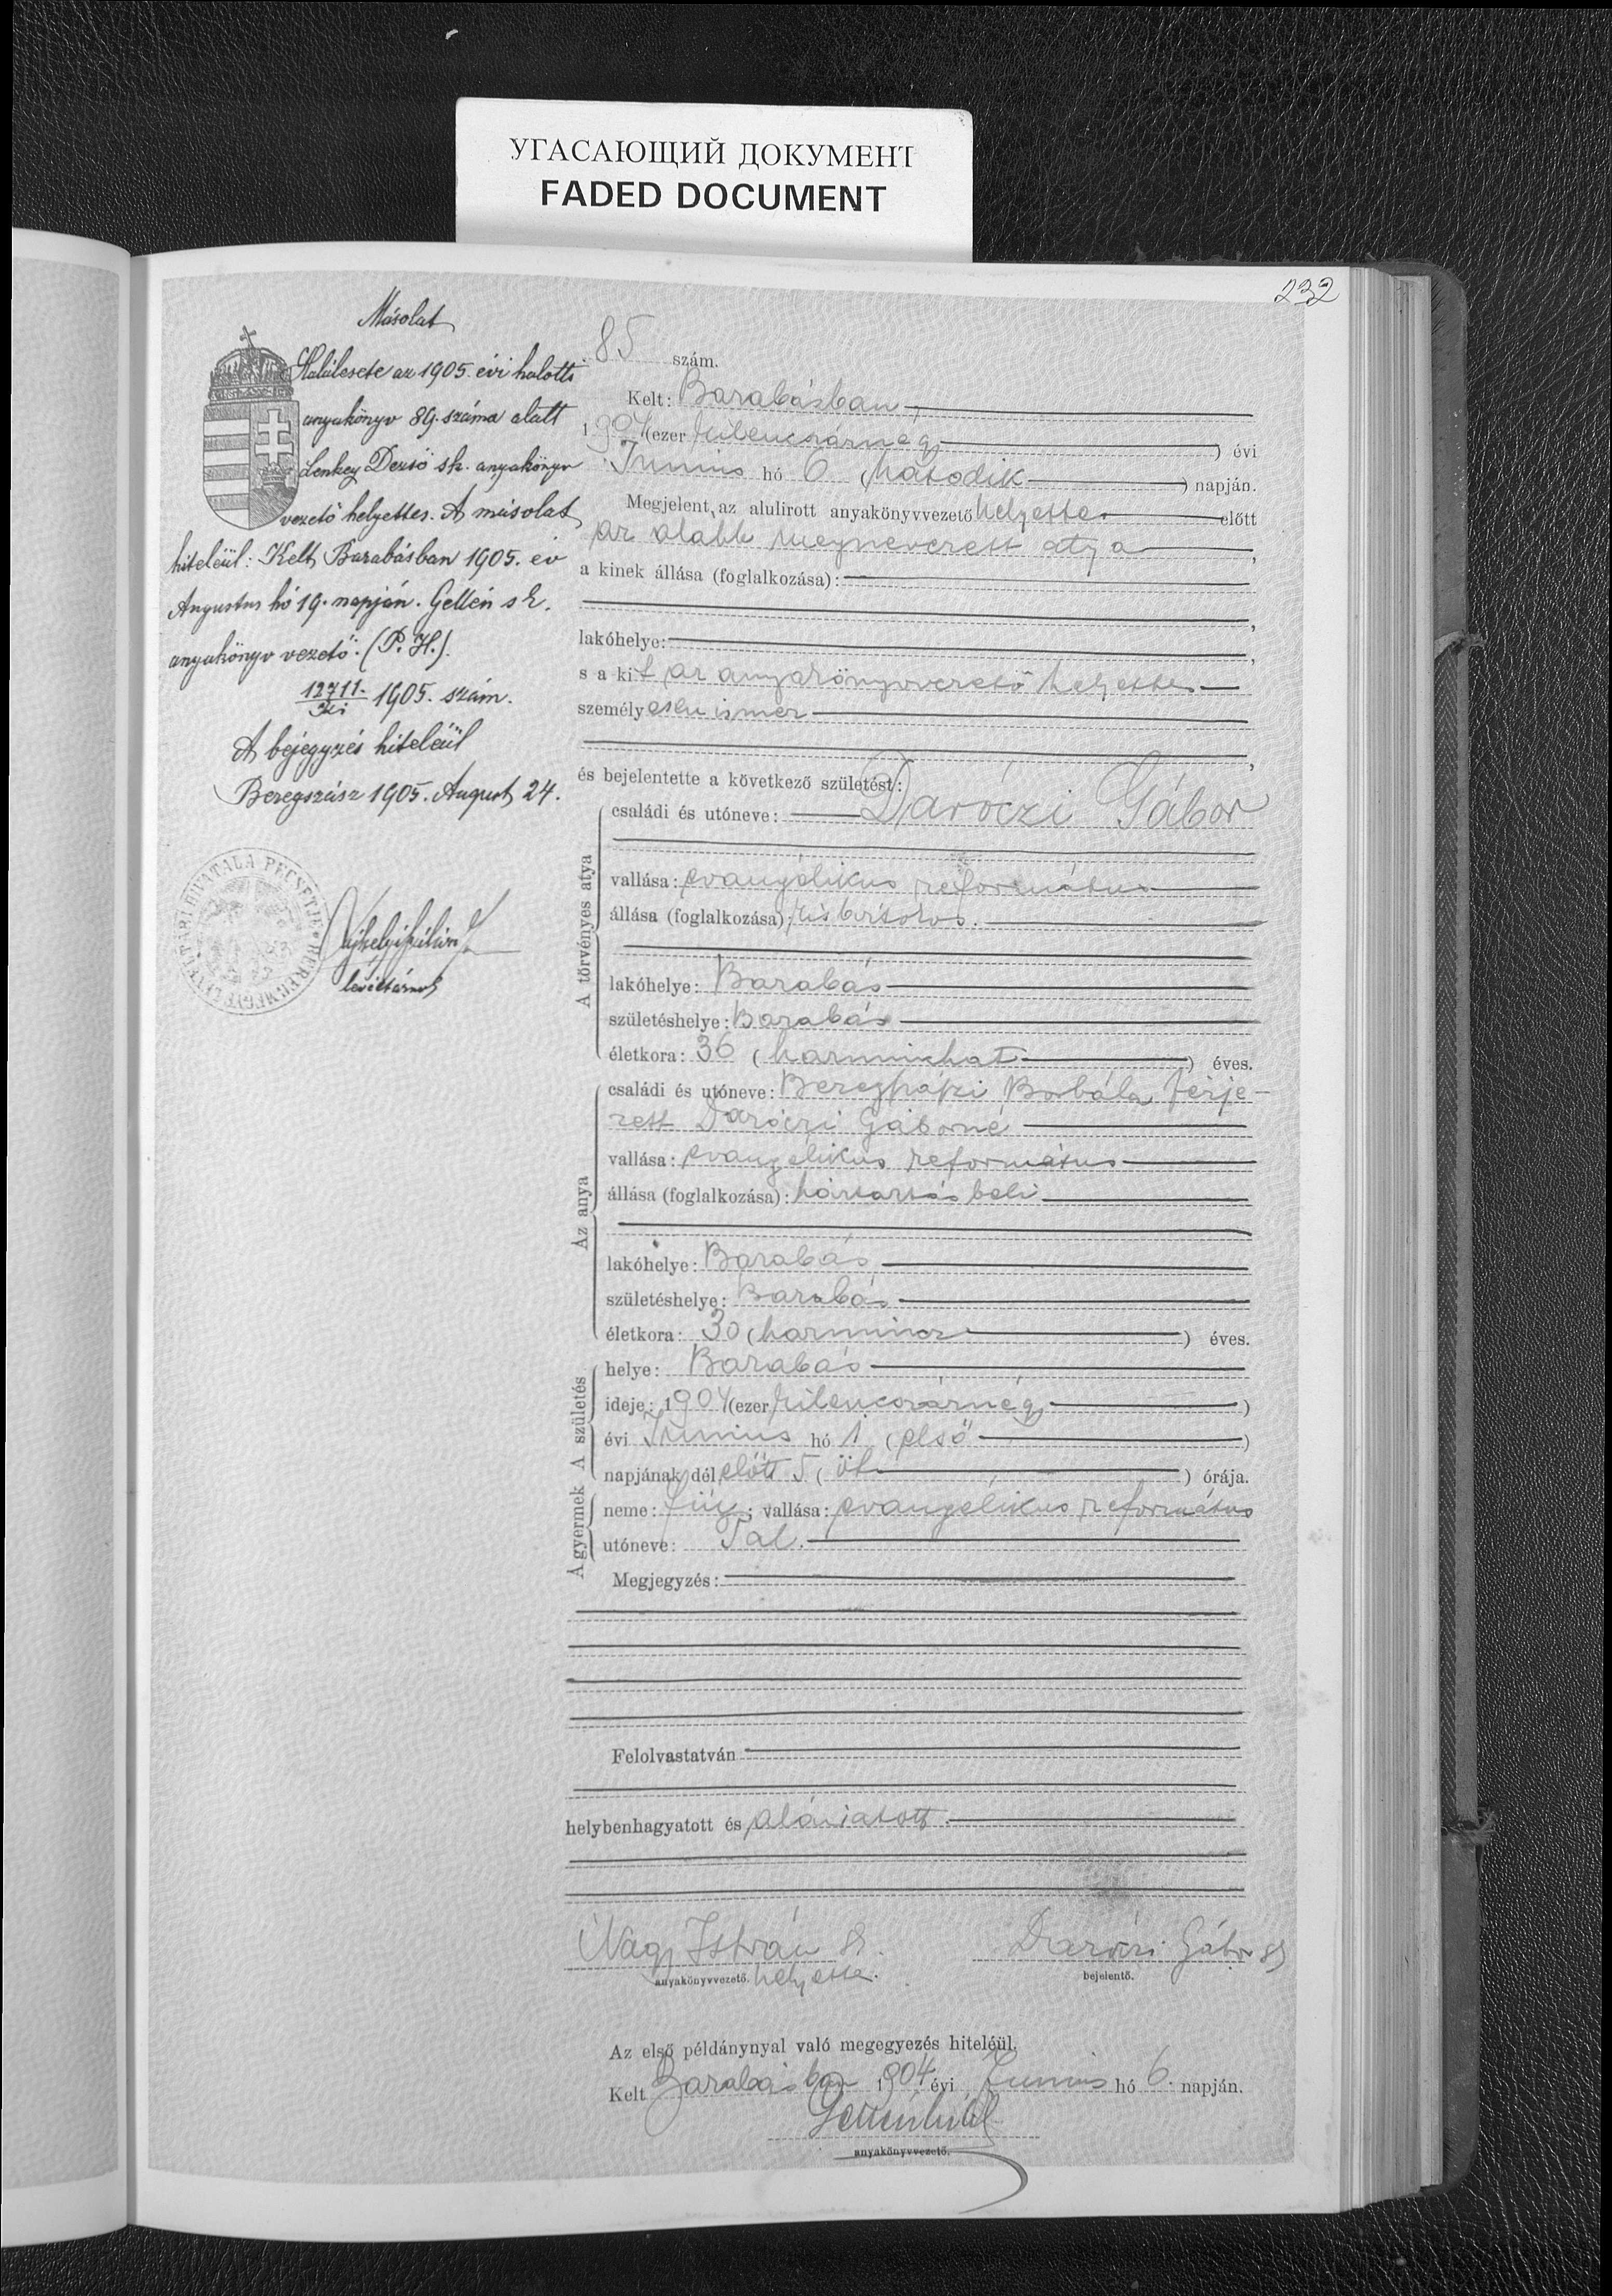 УГАСАЮЩИЙ ДОКУМЕНТ
FADED DOCUMENT
232
Másolat
Halálesete az 1905. évi halotti
anyakönyv 89. száma alatt
Lenkey Dezső sk. anyakönyv
vezető helyettes. A másolat
hiteléül: Kelt Barabásban 1905. év
Augustus hó 19. napján. Gellén sk.
anyakönyv vezető. (P. H.).
12711./ki 1905. szám.
A bejegyzés hiteléül
Beregszász 1905. August 24.
levéltárnok
85 szám.
Kelt: Barabásban,
1904 (ezer kilencszáznégy) évi
Junius hó 6 (hatodik) napján.
Megjelent az alulirott anyakönyvvezető helyettes előtt
az alább megnevezett atya,
a kinek állása (foglalkozása):
lakóhelye:
s a kit az anyakönyvvezető helyettes
személyesen ismer
és bejelentette a következő születést:
A törvényes atya
családi és utóneve: Daróczi Gábor
vallása: evangélikus református
állása (foglalkozása): kisbirtokos.
lakóhelye: Barabás
születéshelye: Barabás
életkora: 36 (harminchat) éves.
Az anya
családi és utóneve: Borbála férje-
zett Daróczi Gáborné
vallása: evangélikus református
állása (foglalkozása): háztartásbeli
lakóhelye: Barabás
születéshelye: Barabás
életkora: 30 (harmincz) éves.
A születés
helye: Barabás
ideje: 1904 (ezer kilenczszáznégy)
évi Junius hó 1 (első)
napjának délelőtt 5 (öt) órája.
A gyermek
neme: fiú; vallása: evangélikus református
utóneve: Pál.
Megjegyzés:
Felolvastatván
helybenhagyatott és aláiratott.
Nagy István sk.
anyakönyvvezető. helyettes.
Daróczi Gábor sk
bejelentő.
Az első példánynyal való megegyezés hiteléül.
Kelt Barabásban 1904 évi Junius hó 6. napján.
anyakönyvvezető.